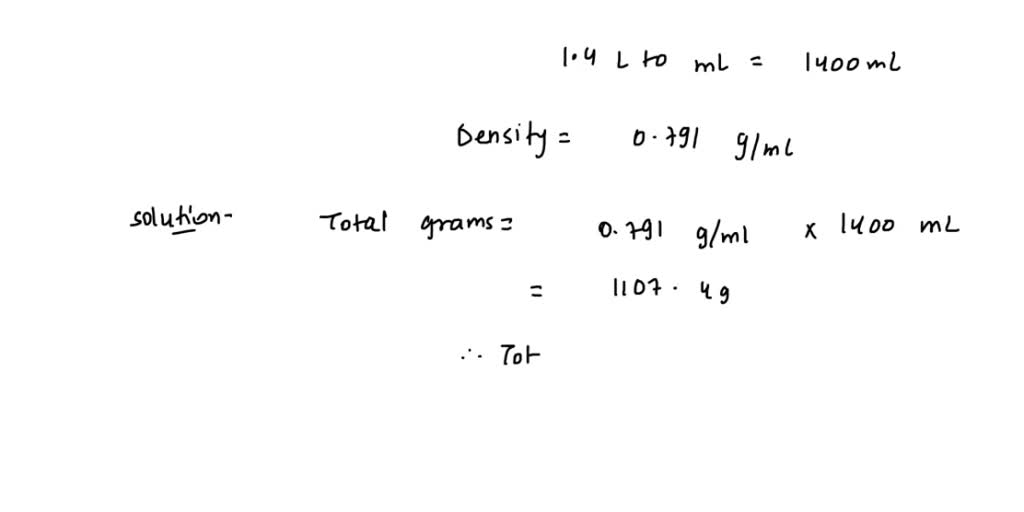 1.4 L to mL = 1400 mL
Density = 0.791 g/mL
solution- Total grams = 0.791 g/ml x 1400 mL
= 1107.4g
∴ Tot